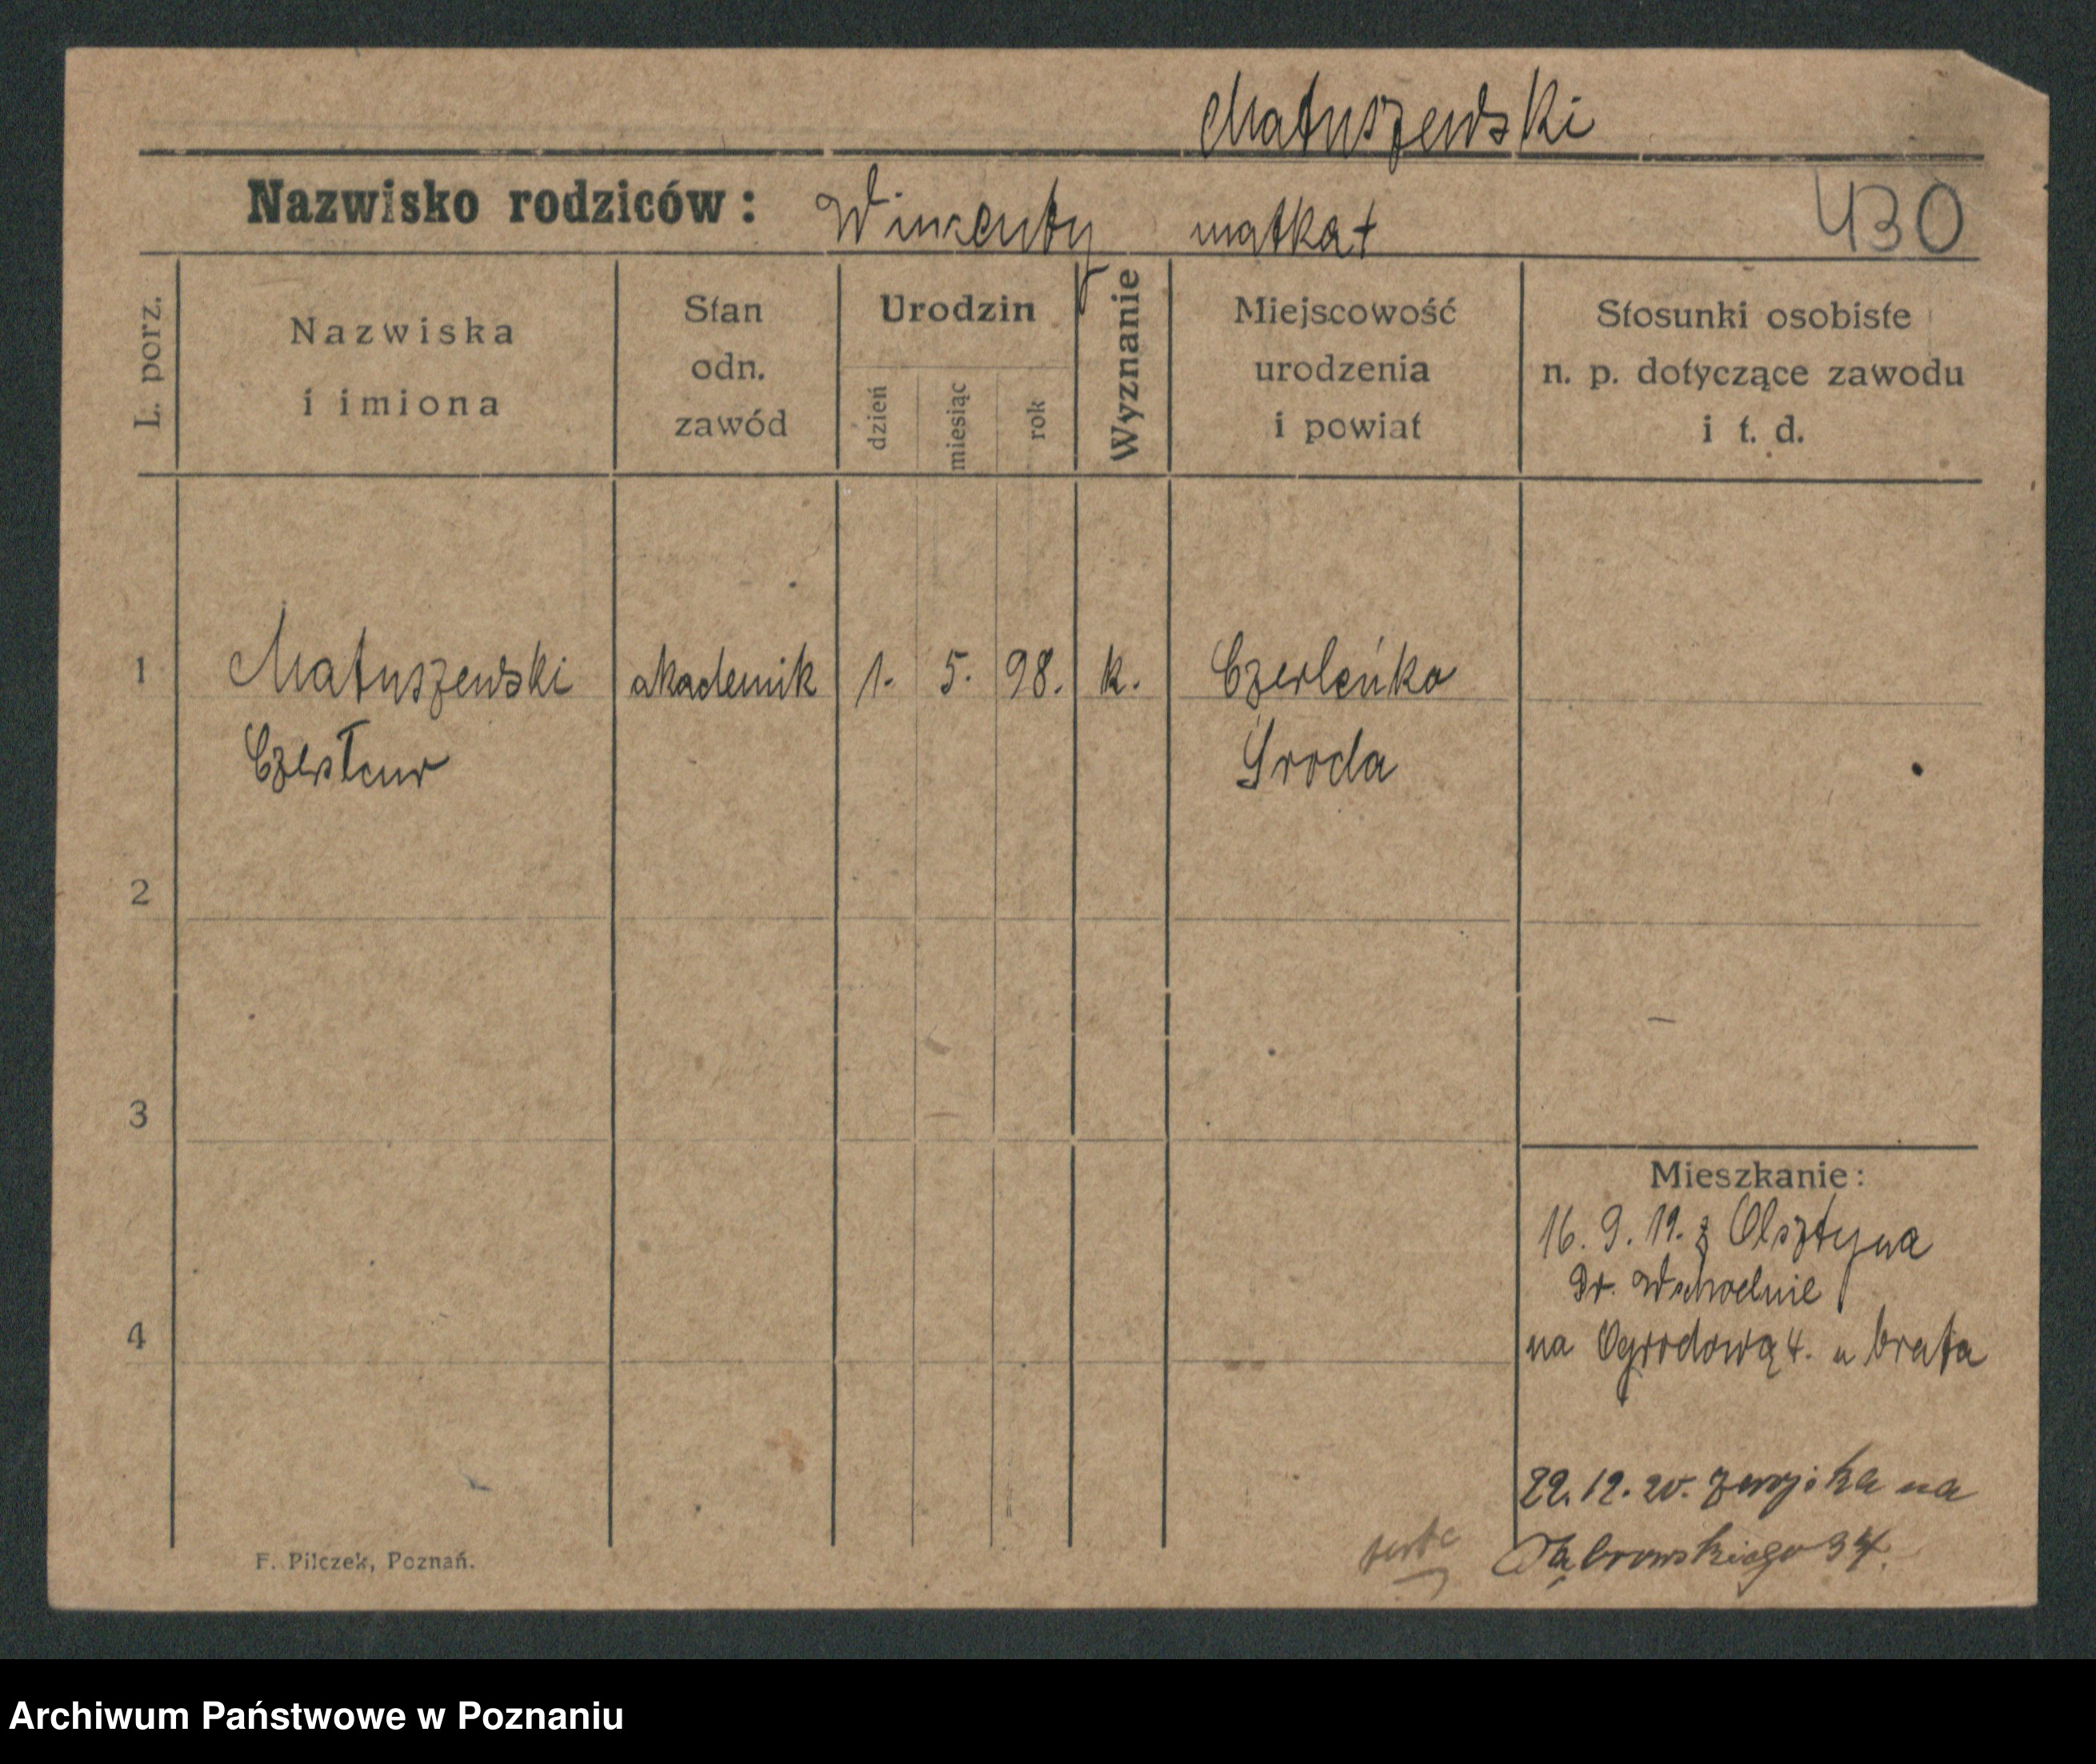 Matuszewski
Nazwisko rodziców: Wincenty matka +
430
L. porz.
Nazwiska
i imiona
Stan
odn.
zawód
Urodzin
dzień
miesiąc
rok
Wyznanie
Miejscowość
urodzenia
i powiat
Stosunki osobiste
n. p. dotyczące zawodu
i t. d.
1 Matuszewski akademik 1. 5. 98. k. Czerleńko
Czesław Środa
2
3
4
Mieszkanie:
16. 9. 19. z Olsztyna
Pr. Wschodnie
na Ogrodową 4. u brata
22. 12. 20. z wojska na
Dąbrowskiego 34.
F. Pilczek, Poznań.
Archiwum Państwowe w Poznaniu